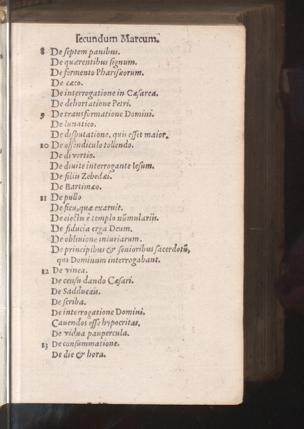 secundum Marcum.
8 De septem panibus.
De quærentibus signum.
De fermento Pharisæorum.
De cæco.
De interrogatione in Cæsarea.
De dehortatione Petri.
9 De transformatione Domini.
De lunatico.
De disputatione, quis esset maior.
10 De offendiculo tollendo.
De divortio.
De divite interrogante Iesum.
De filiis Zebedæi.
De Bartimæo.
11 De pullo
De ficu, quæ exaruit.
De eiectis è templo nūmulariis.
De fiducia erga Deum.
De oblivione iniuriarum.
De principibus & senioribus sacerdotū,
qui Dominum interrogabant.
12 De vinea.
De censu dando Cæsari.
De Sadducæis.
De scriba.
De interrogatione Domini.
Cavendos esse hypocritas.
De vidua paupercula.
13 De consummatione.
De die & hora.